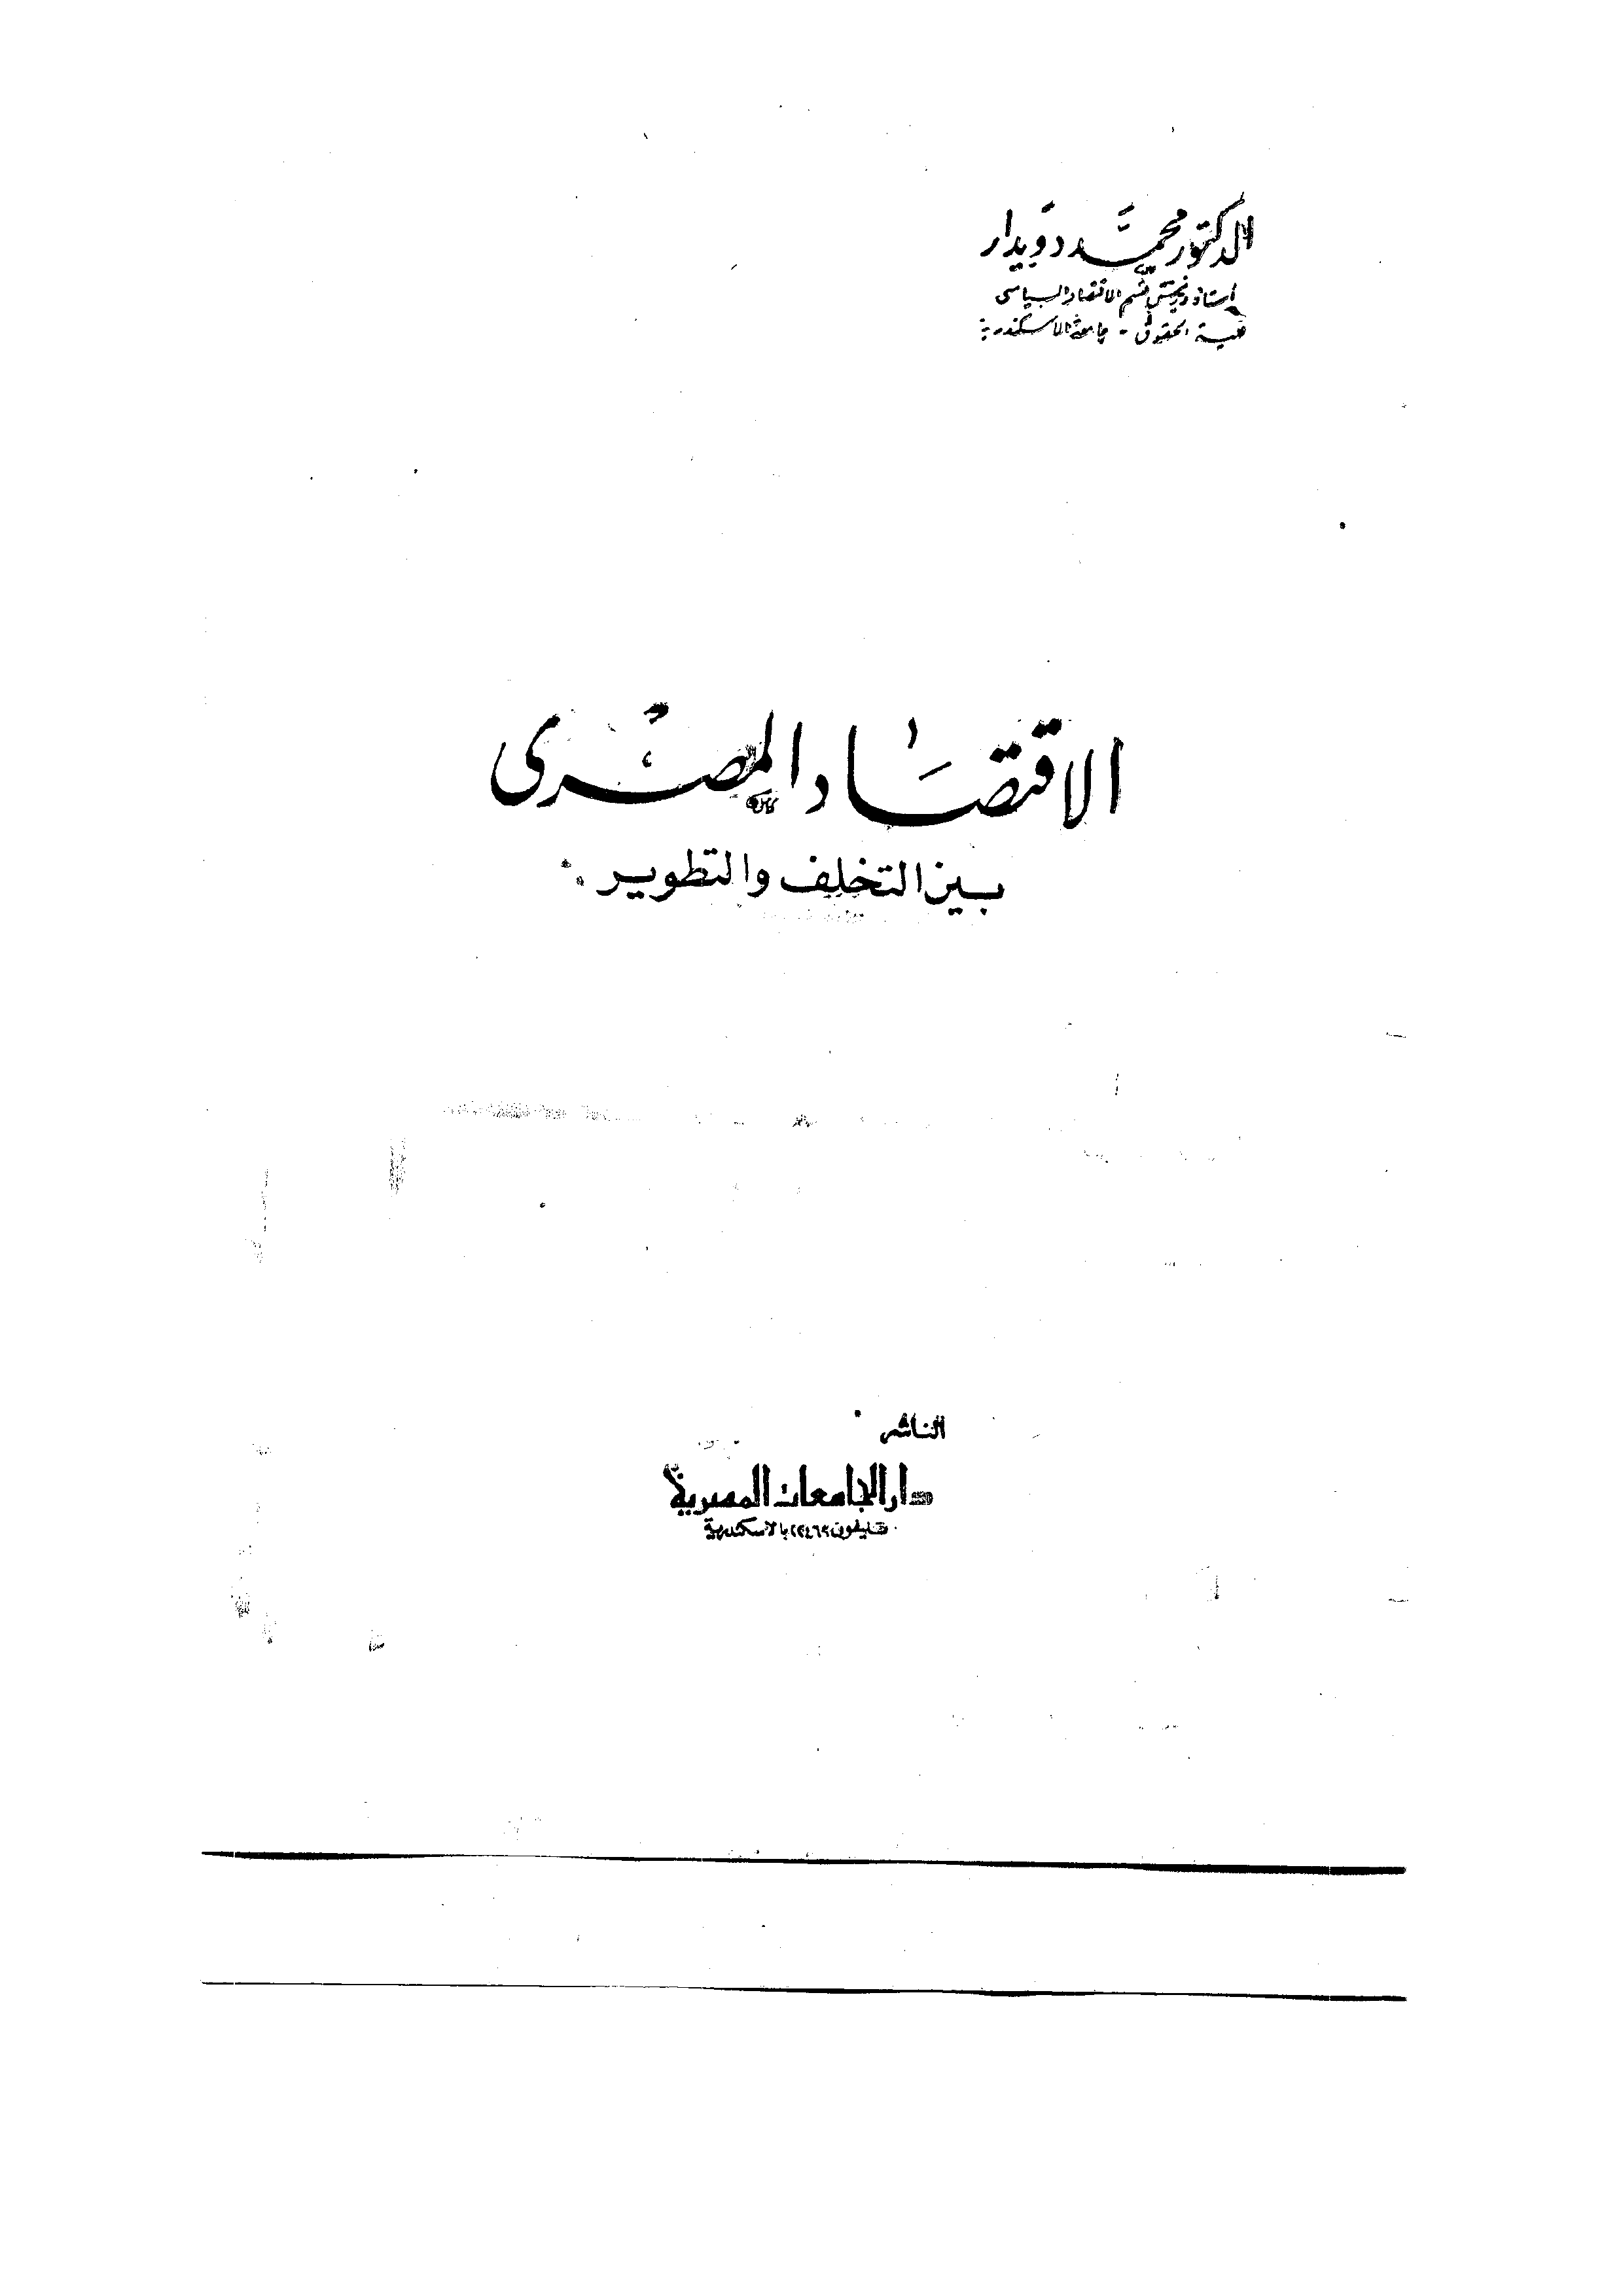 الدكتور محمد دويدار
أستاذ ورئيس قسم الاقتصاد السياسى
كلية الحقوق - جامعة الاسكندرية
الاقتصاد المصرى
بين التخلف والتطوير
الناشر
دار الجامعات المصرية
تليفون بالاسكندرية